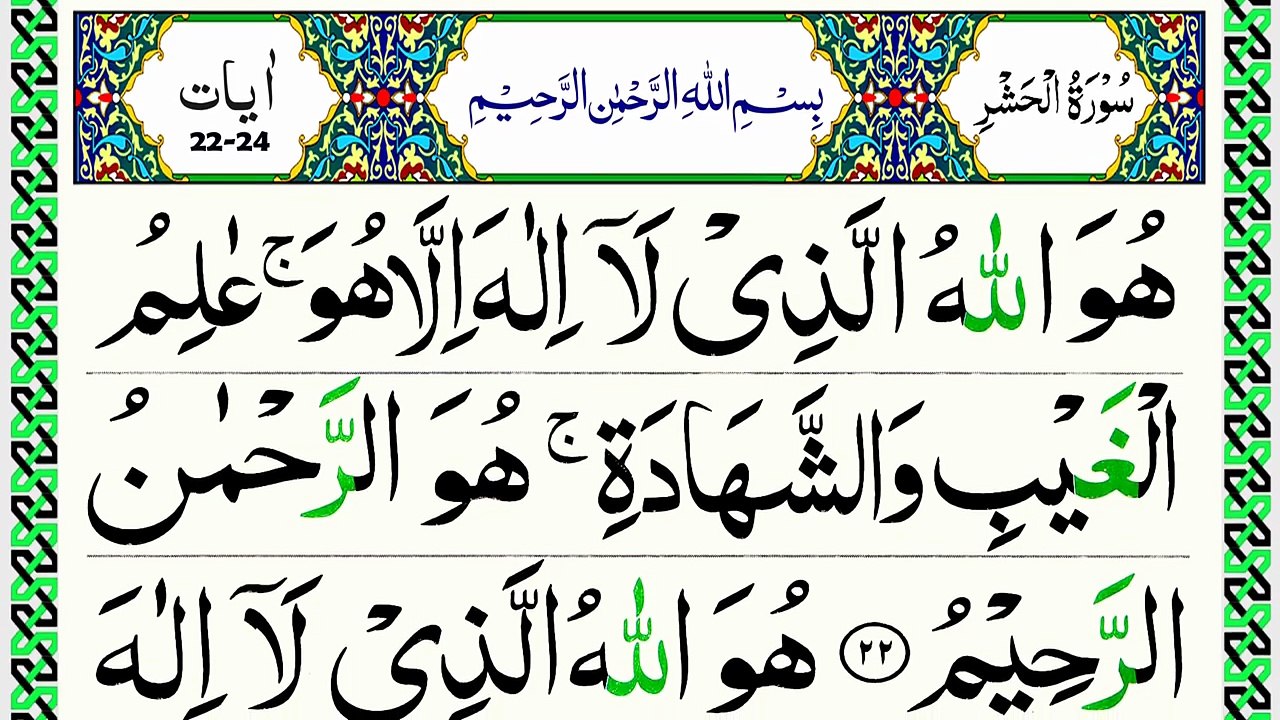 سُوْرَةُ الْحَشْرِ
بِسْمِ اللّٰهِ الرَّحْمٰنِ الرَّحِيْمِ
اٰيات
22-24
هُوَ اللّٰهُ الَّذِىْ لَآ اِلٰهَ اِلَّا هُوَ ۚ عٰلِمُ
الْغَيْبِ وَالشَّهَادَةِ ۚ هُوَ الرَّحْمٰنُ
الرَّحِيْمُ ﴿٢٢﴾ هُوَ اللّٰهُ الَّذِىْ لَآ اِلٰهَ